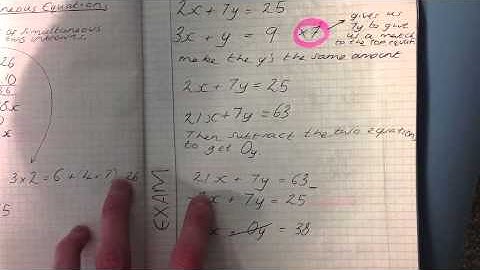 neous Equations
of simultaneous
two unknowns.
26
3 x 2 = 6 + 4 x 26
EXAM
2x + 7y = 25
3x + y = 9 x7
gives us
7y to give
us a match
to the top
make the y's the same amount
2x + 7y = 25
21x + 7y = 63
Then subtract the two equation
to get 0y
21x + 7y = 63
x + 7y = 25
x = 0y = 38